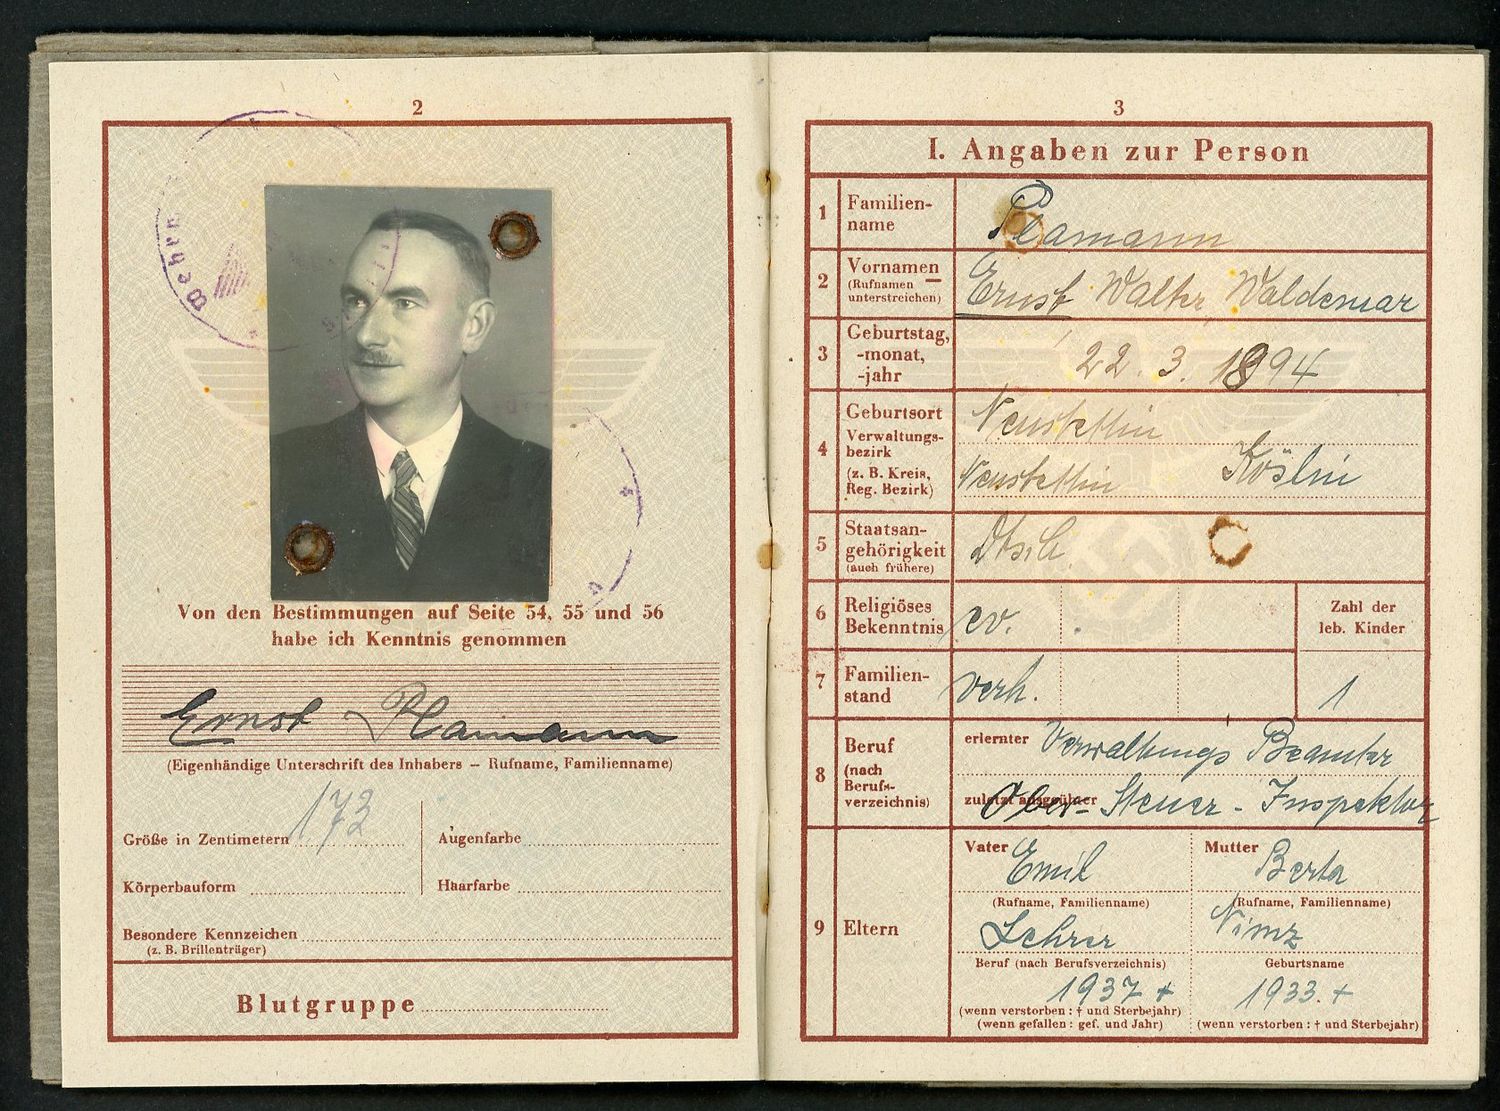 2
Wehr
Von den Bestimmungen auf Seite 54, 55 und 56
habe ich Kenntnis genommen
Ernst Plamann
(Eigenhändige Unterschrift des Inhabers – Rufname, Familienname)
Größe in Zentimetern 173
Augenfarbe
Körperbauform
Haarfarbe
Besondere Kennzeichen
(z. B. Brillenträger)
Blutgruppe
3
I. Angaben zur Person
1 Familien-
name
Plamann
2 Vornamen
(Rufnamen
unterstreichen)
Ernst Walter Waldemar
3 Geburtstag,
-monat,
-jahr
22. 3. 1894
4 Geburtsort
Neustettin
Verwaltungs-
bezirk
(z. B. Kreis,
Reg. Bezirk)
Neustettin Köslin
5 Staatsan-
gehörigkeit
(auch frühere)
6 Religiöses
Bekenntnis
ev.
Zahl der
leb. Kinder
7 Familien-
stand
verh.
1
8 Beruf
(nach
Berufs-
verzeichnis)
erlernter Verwaltungs Beamter
zuletzt ausgeübter Ober- Steuer - Inspektor
9 Eltern
Vater Emil
(Rufname, Familienname)
Lehrer
Beruf (nach Berufsverzeichnis)
1937 +
(wenn verstorben: † und Sterbejahr)
(wenn gefallen: gef. und Jahr)
Mutter Berta
(Rufname, Familienname)
Nimz
Geburtsname
1933. +
(wenn verstorben: † und Sterbejahr)